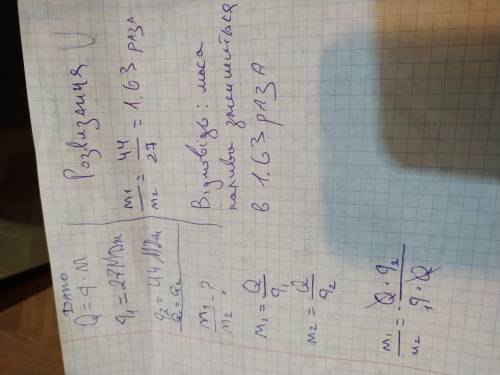 Дато
Q = q · M
q₁ = 27 МДж
q₂ = 44 МДж
Q₁ = Q₂
m₁/m₂ - ?
m₁ = Q/q₁
m₂ = Q/q₂
m₁/m₂ = Q · q₂ / q₁ · Q
Розвязання
m₁/m₂ = 44/27 = 1.63 раза
Відповідь: маса
палива зменшиться
в 1.63 раза